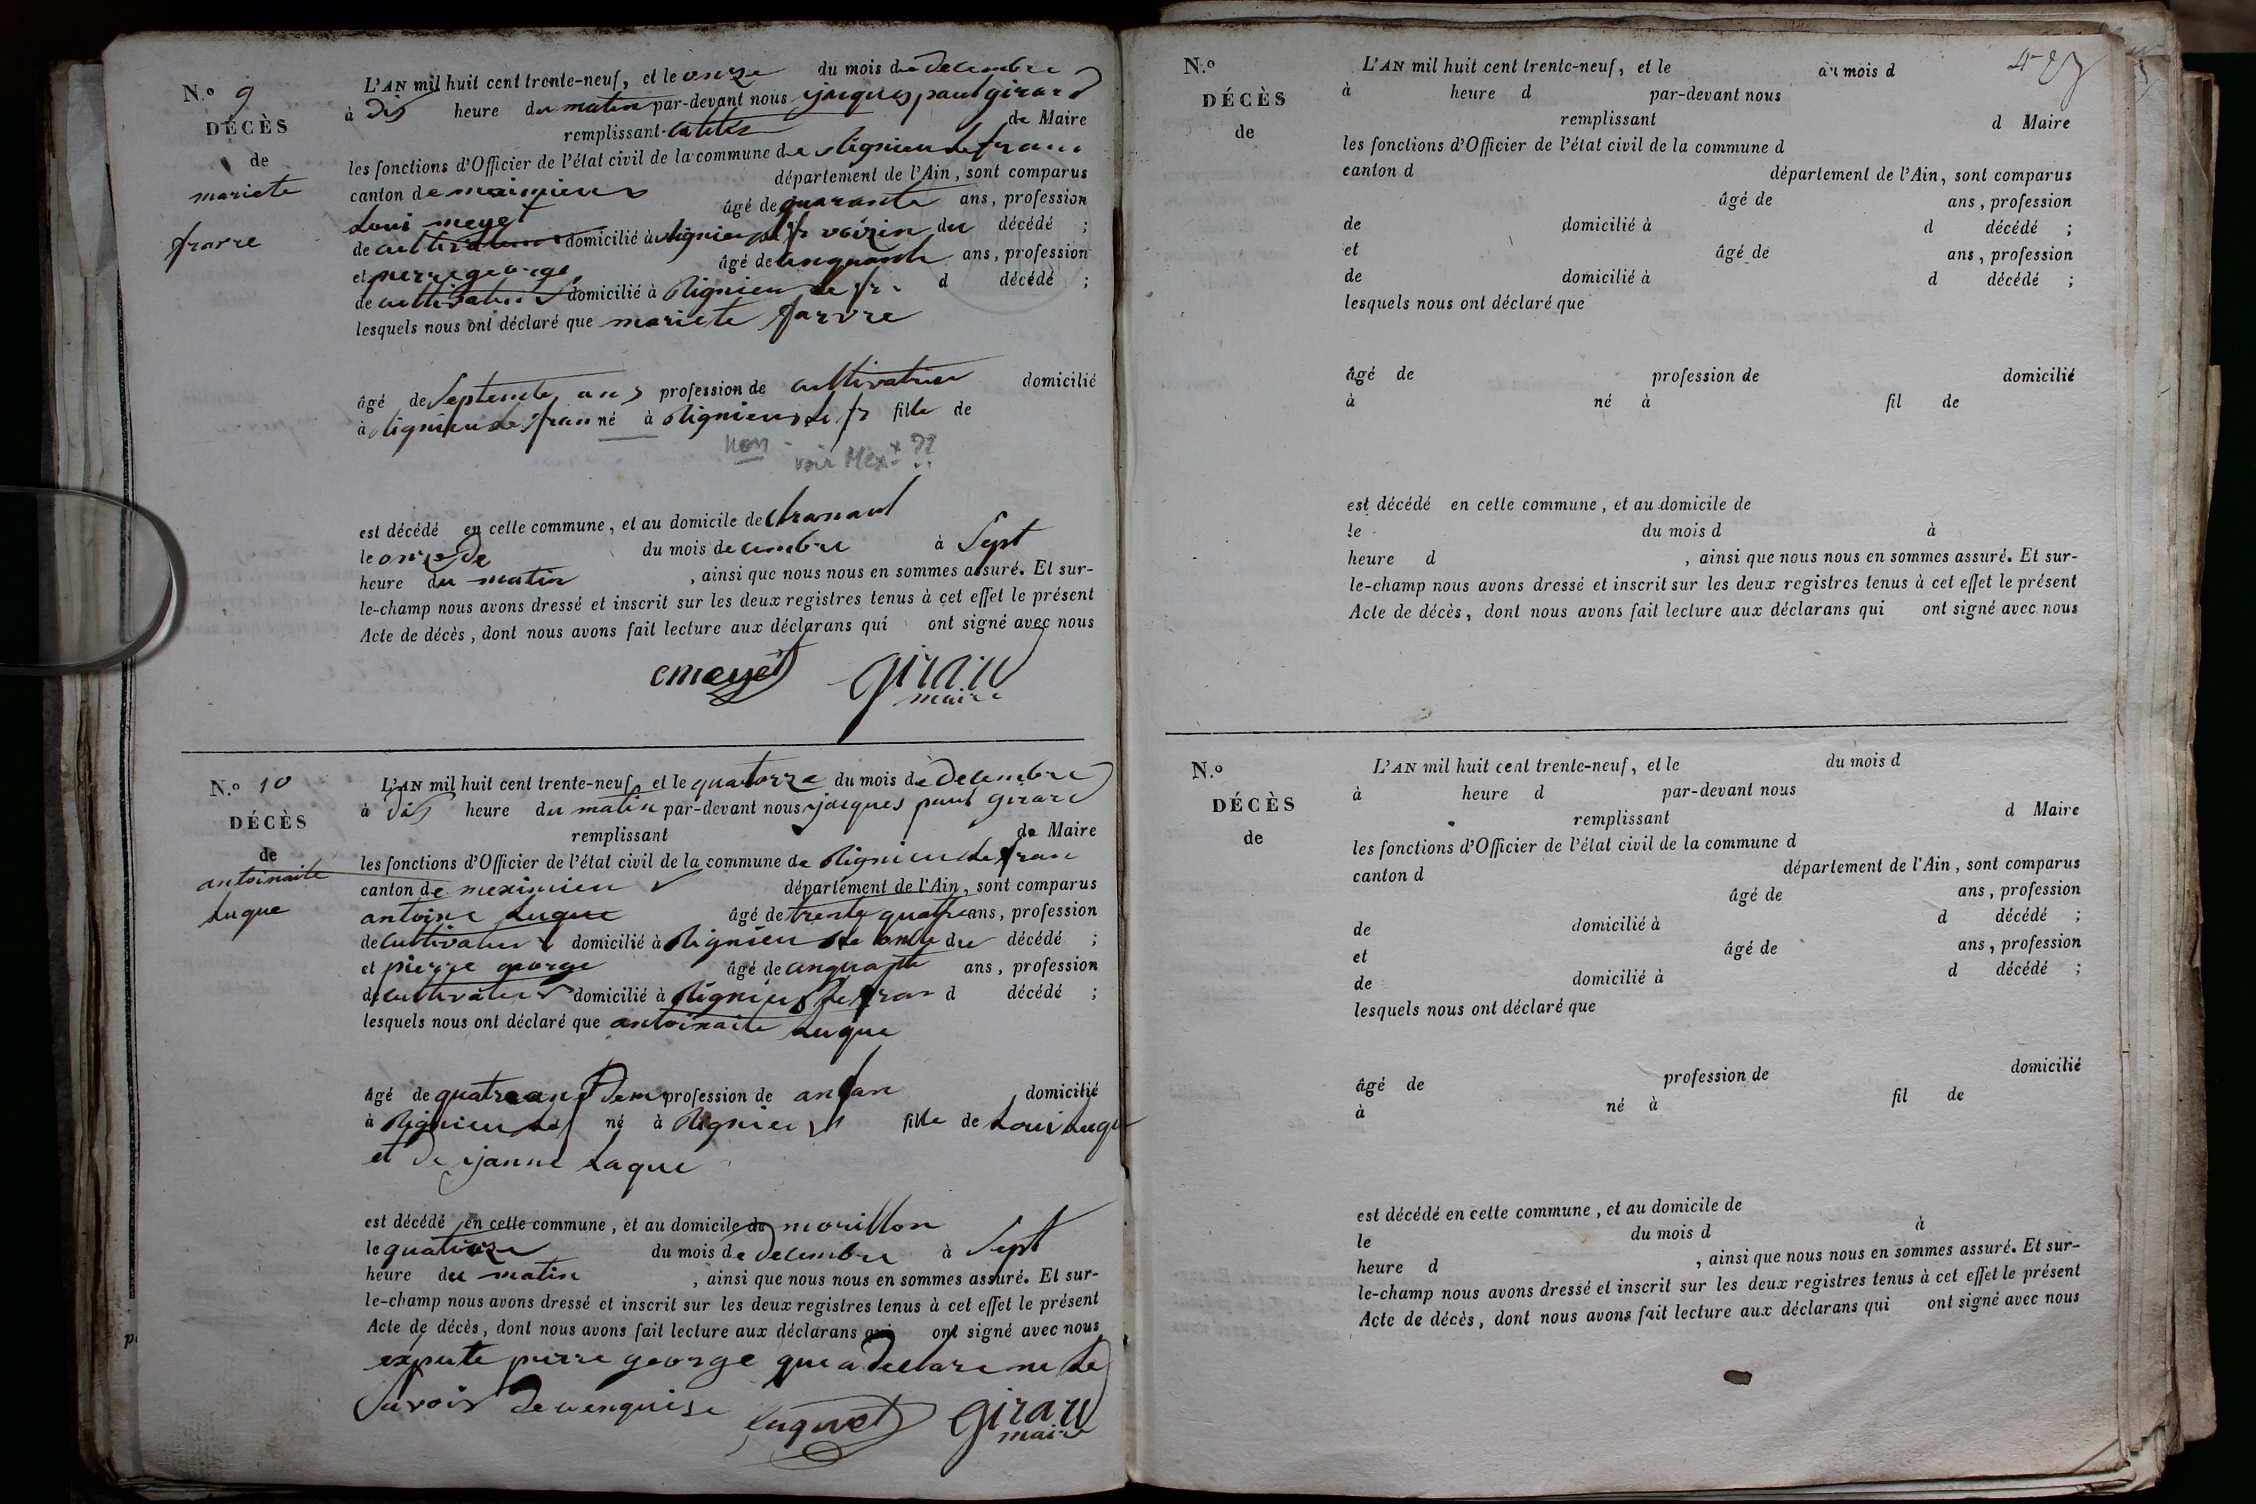 N.o 9
DÉCÈS
de
mariete
frarre
L'AN mil huit cent trente-neuf, et le onze du mois de decembre
à dis heure du matin par-devant nous jacques paul girard
remplissant de Maire
les fonctions d'Officier de l'état civil de la commune de Rignieu le fran
canton de meximieux département de l'Ain, sont comparus
Loui meyet âgé de quarante ans, profession
de cultivateur domicilié à Rignieu le fr voizin du décédé ;
et pierre george âgé de cinquante ans, profession
de cultivateur domicilié à Rignieu le fr d décédé ;
lesquels nous ont déclaré que mariete farvre
âgé de Septente ans profession de cultivatrice domicilié
à Rignieu le fran né à Rignieu le fr fille de
non - voir Mex.x ??
est décédé en cette commune, et au domicile de
le onze de du mois decembre à Sept
heure du matin , ainsi que nous nous en sommes assuré. Et sur-
le-champ nous avons dressé et inscrit sur les deux registres tenus à cet effet le présent
Acte de décès, dont nous avons fait lecture aux déclarans qui ont signé avec nous
meyet girard
maire
N.o 10
DÉCÈS
de
antoinaite
Luque
L'AN mil huit cent trente-neuf, et le quatorze du mois de Decembre
à dis heure du matin par-devant nous jacques paul girard
remplissant de Maire
les fonctions d'Officier de l'état civil de la commune de Rignieu le fran
canton de meximieu département de l'Ain, sont comparus
antoine Luque âgé de trente quatre ans, profession
de cultivateur domicilié à Rignieu le oncle du décédé ;
et pierre george âgé de cinquante ans, profession
de cultivateur domicilié à Rignieu le fran d décédé ;
lesquels nous ont déclaré que antoinaite Luque
âgé de quatre ans Demi profession de anfan domicilié
à Rignieu le f né à Rignieu fille de Loui Luque
et de janne Laque
est décédé en cette commune, et au domicile de morillon
le quatorze du mois de Decembre à Sept
heure du matin , ainsi que nous nous en sommes assuré. Et sur-
le-champ nous avons dressé et inscrit sur les deux registres tenus à cet effet le présent
Acte de décès, dont nous avons fait lecture aux déclarans qui ont signé avec nous
expte pierre george que a Declare ne le
Savoir De cenquise
Luquet girard
maire
N.o
DÉCÈS
de
L'AN mil huit cent trente-neuf, et le du mois d
à heure d par-devant nous
remplissant d Maire
les fonctions d'Officier de l'état civil de la commune d
canton d département de l'Ain, sont comparus
âgé de ans, profession
de domicilié à d décédé ;
et âgé de ans, profession
de domicilié à d décédé ;
lesquels nous ont déclaré que
âgé de profession de domicilié
à né à fil de
est décédé en cette commune, et au domicile de
le du mois d à
heure d , ainsi que nous nous en sommes assuré. Et sur-
le-champ nous avons dressé et inscrit sur les deux registres tenus à cet effet le présent
Acte de décès, dont nous avons fait lecture aux déclarans qui ont signé avec nous
N.o
DÉCÈS
de
L'AN mil huit cent trente-neuf, et le du mois d
à heure d par-devant nous
remplissant d Maire
les fonctions d'Officier de l'état civil de la commune d
canton d département de l'Ain, sont comparus
âgé de ans, profession
de domicilié à d décédé ;
et âgé de ans, profession
de domicilié à d décédé ;
lesquels nous ont déclaré que
âgé de profession de domicilié
à né à fil de
est décédé en cette commune, et au domicile de
le du mois d à
heure d , ainsi que nous nous en sommes assuré. Et sur-
le-champ nous avons dressé et inscrit sur les deux registres tenus à cet effet le présent
Acte de décès, dont nous avons fait lecture aux déclarans qui ont signé avec nous